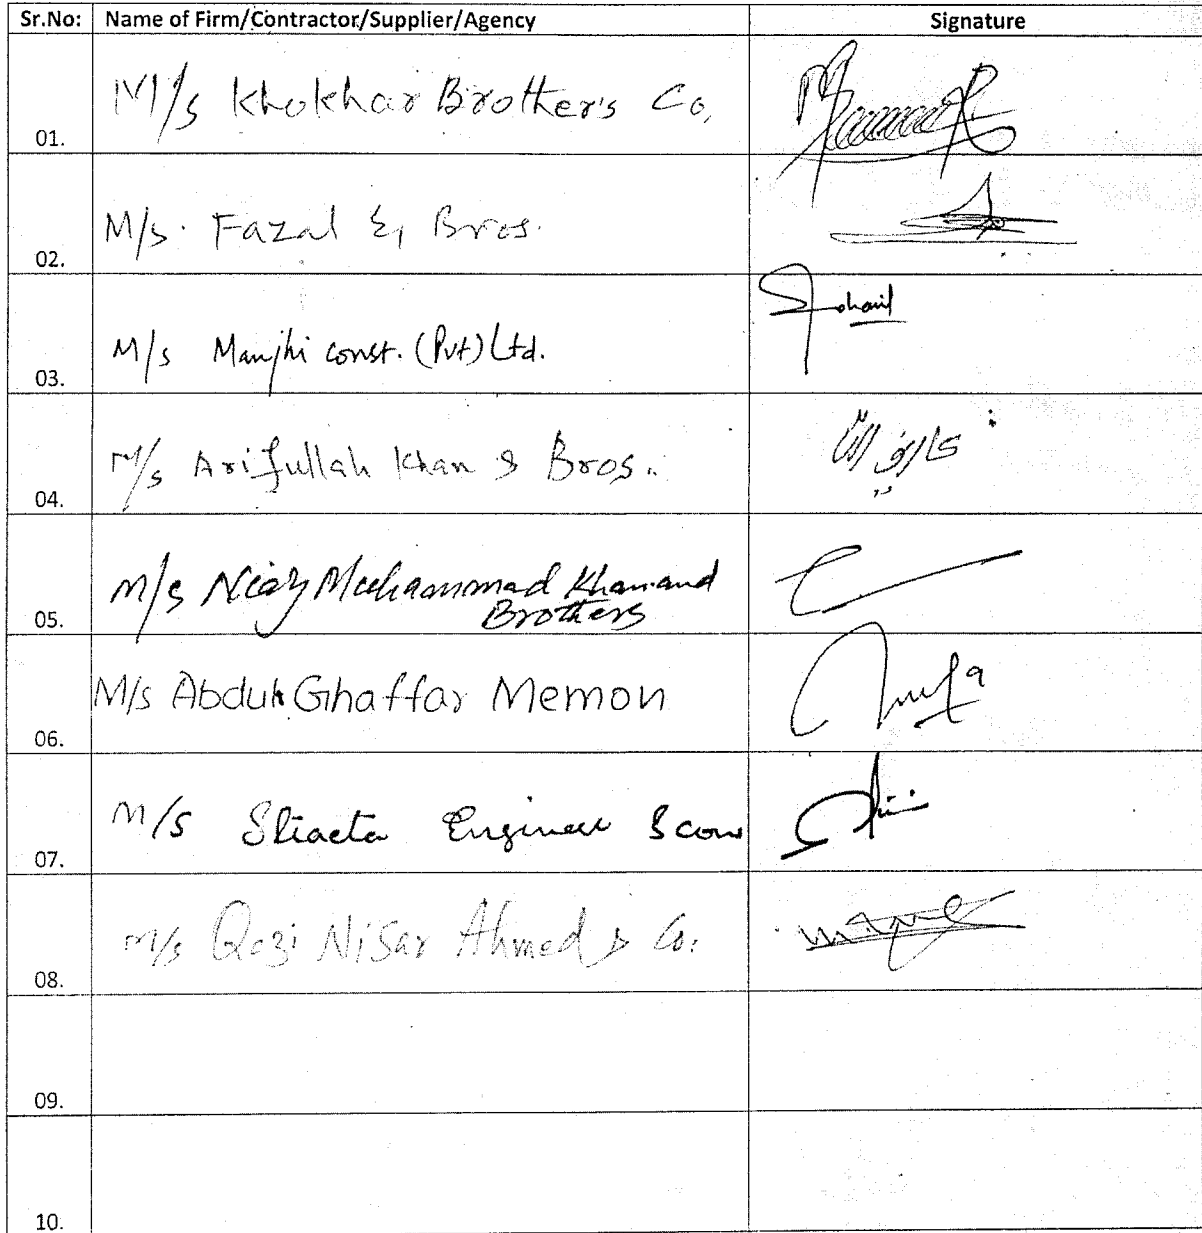 Sr.No: Name of Firm/Contractor/Supplier/Agency Signature
01. M/s Khokhar Brother's Co,
02. M/s. Fazal & Bros.
03. M/s Manjhi const. (Pvt) Ltd. Sohail
04. M/s Arifullah Khan & Bros..
05. M/s Niaz Muhammad Khan and
Brothers
06. M/s Abdul Ghaffar Memon
07. M/s Engineer &
08. M/s Qazi Nisar Ahmed & Co:
09.
10.